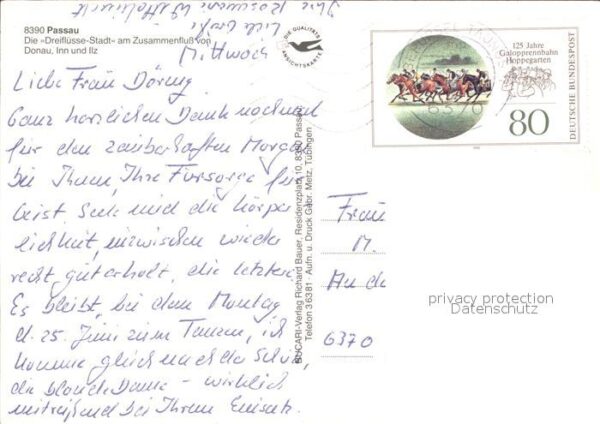 8390 Passau
Die «Dreiflüsse-Stadt» am Zusammenfluß von
Donau, Inn und Ilz
DIE QUALITÄTS
ANSICHTSKARTE
Mittwoch
Liebe Frau Döring
Ganz herzlichen Dank nochmal
für den zauberhaften Morgen
bei Ihnen, Ihre Fürsorge für
Geist, Seele und die körper
lichkeit, inzwischen wieder
recht gut erholt, die letztere.
Es bleibt bei dem Montag
d. 25. Juni zum Tanzen, ich
komme gleich nach der Schule,
die blonde Dame – wirklich
mitreißend bei Ihrem Einsatz.
Liebe Grüße
Ihre
BUCARI-Verlag Richard Bauer, Residenzplatz 10, 8390 Passau
Telefon 36381 · Aufn. u. Druck Gebr. Metz, Tübingen
125 Jahre
Galopprennbahn
Hoppegarten
80
DEUTSCHE BUNDESPOST
6370
Frau
M.
An de
6370
privacy protection
Datenschutz